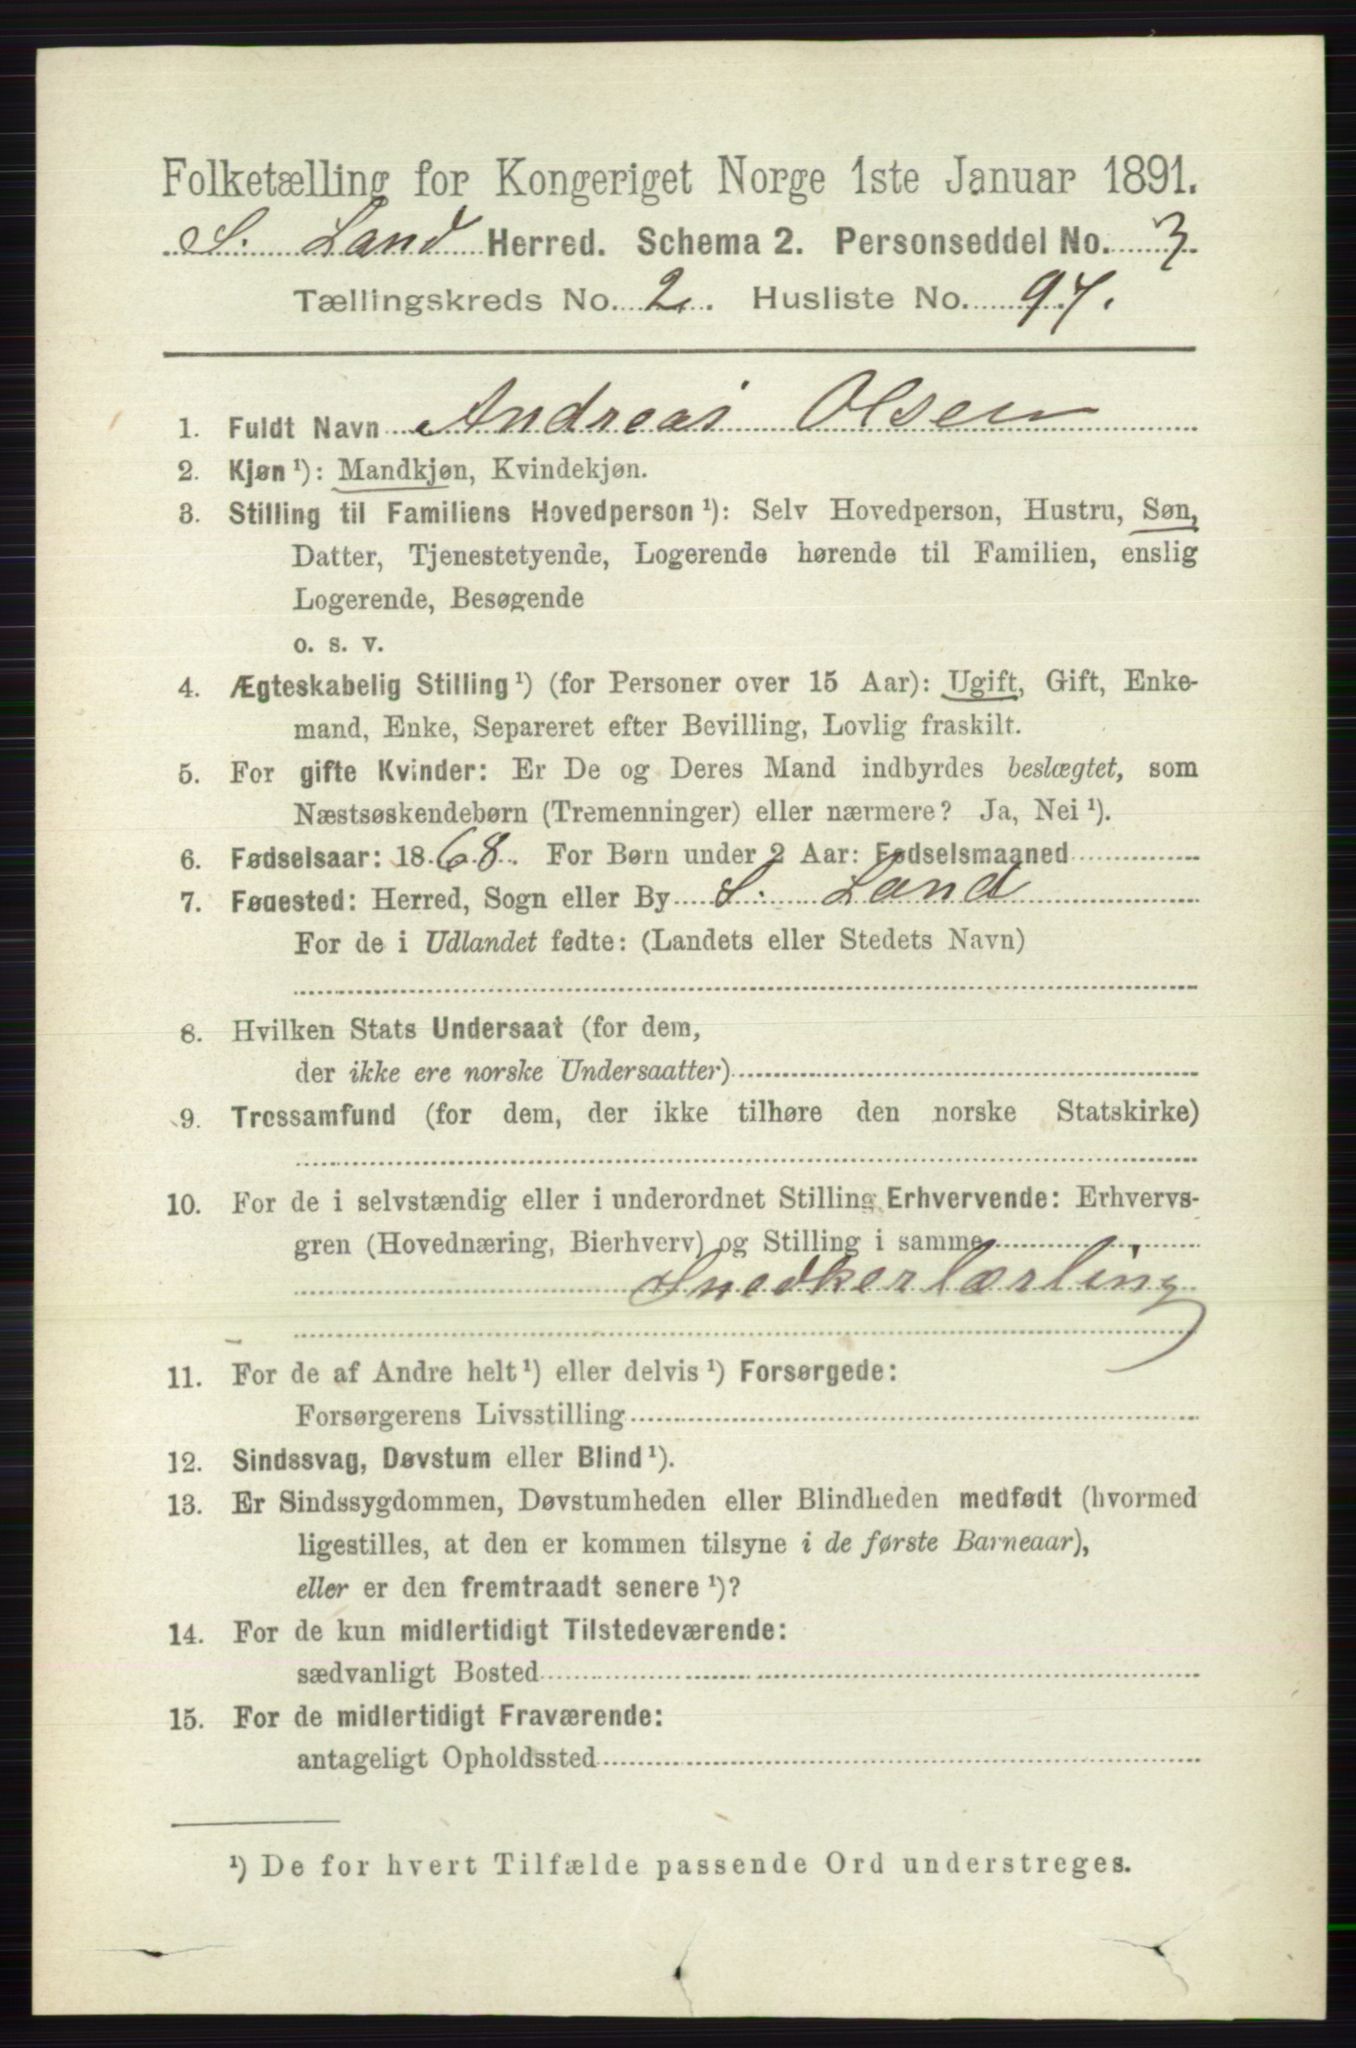 Folketælling for Kongeriget Norge 1ste Januar 1891.
S. Land Herred. Schema 2. Personseddel No. 3
Tællingskreds No. 2. Husliste No. 97.
1. Fuldt Navn Andreas Olsen
2. Kjøn¹): Mandkjøn, Kvindekjøn.
3. Stilling til Familiens Hovedperson¹): Selv Hovedperson, Hustru, Søn,
Datter, Tjenestetyende, Logerende hørende til Familien, enslig
Logerende, Besøgende
o. s. v.
4. Ægteskabelig Stilling¹) (for Personer over 15 Aar): Ugift, Gift, Enke-
mand, Enke, Separeret efter Bevilling, Lovlig fraskilt.
5. For gifte Kvinder: Er De og Deres Mand indbyrdes beslægtet, som
Næstsøskendebørn (Tremenninger) eller nærmere? Ja, Nei¹).
6. Fødselsaar: 1868. For Børn under 2 Aar: Fødselsmaaned
7. Fødested: Herred, Sogn eller By S. Land
For de i Udlandet fødte: (Landets eller Stedets Navn)
8. Hvilken Stats Undersaat (for dem,
der ikke ere norske Undersaatter)
9. Trossamfund (for dem, der ikke tilhøre den norske Statskirke)
10. For de i selvstændig eller i underordnet Stilling Erhvervende: Erhvervs-
gren (Hovednæring, Bierhverv) og Stilling i samme
Snedkerlærling
11. For de af Andre helt¹) eller delvis¹) Forsørgede:
Forsørgerens Livsstilling
12. Sindssvag, Døvstum eller Blind¹).
13. Er Sindssygdommen, Døvstumheden eller Blindheden medfødt (hvormed
ligestilles, at den er kommen tilsyne i de første Barneaar),
eller er den fremtraadt senere¹)?
14. For de kun midlertidigt Tilstedeværende:
sædvanligt Bosted
15. For de midlertidigt Fraværende:
antageligt Opholdssted
¹) De for hvert Tilfælde passende Ord understreges.